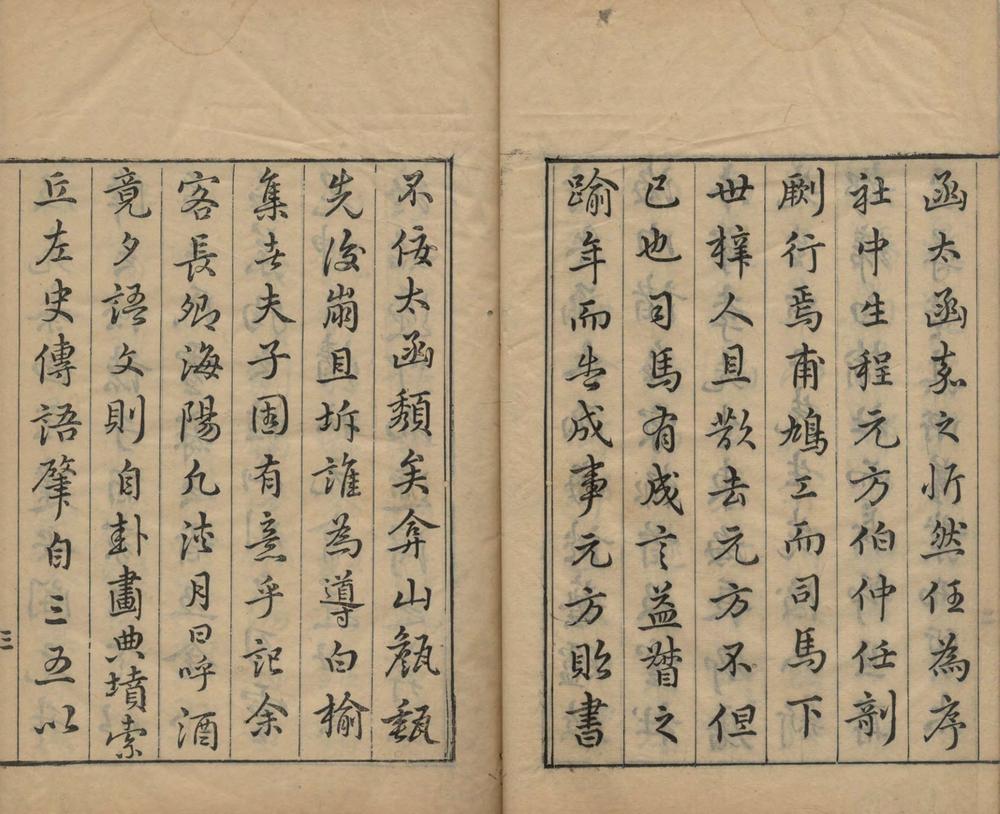 函太函嘉之忻然任為序
社中生程元方伯仲任剞
劂行焉甫鳩工而司馬下
世梓人且散去元方不但
已也司馬有成言益督之
踰年而告成事元方貽書
不佞太函頹矣弇山甗甀
先後崩且坼誰為導白榆
集者夫子固有意乎記余
客長卿海陽凡浹月日呼酒
竟夕語文則自卦畫典墳索
丘左史傳語肇自三五以
三